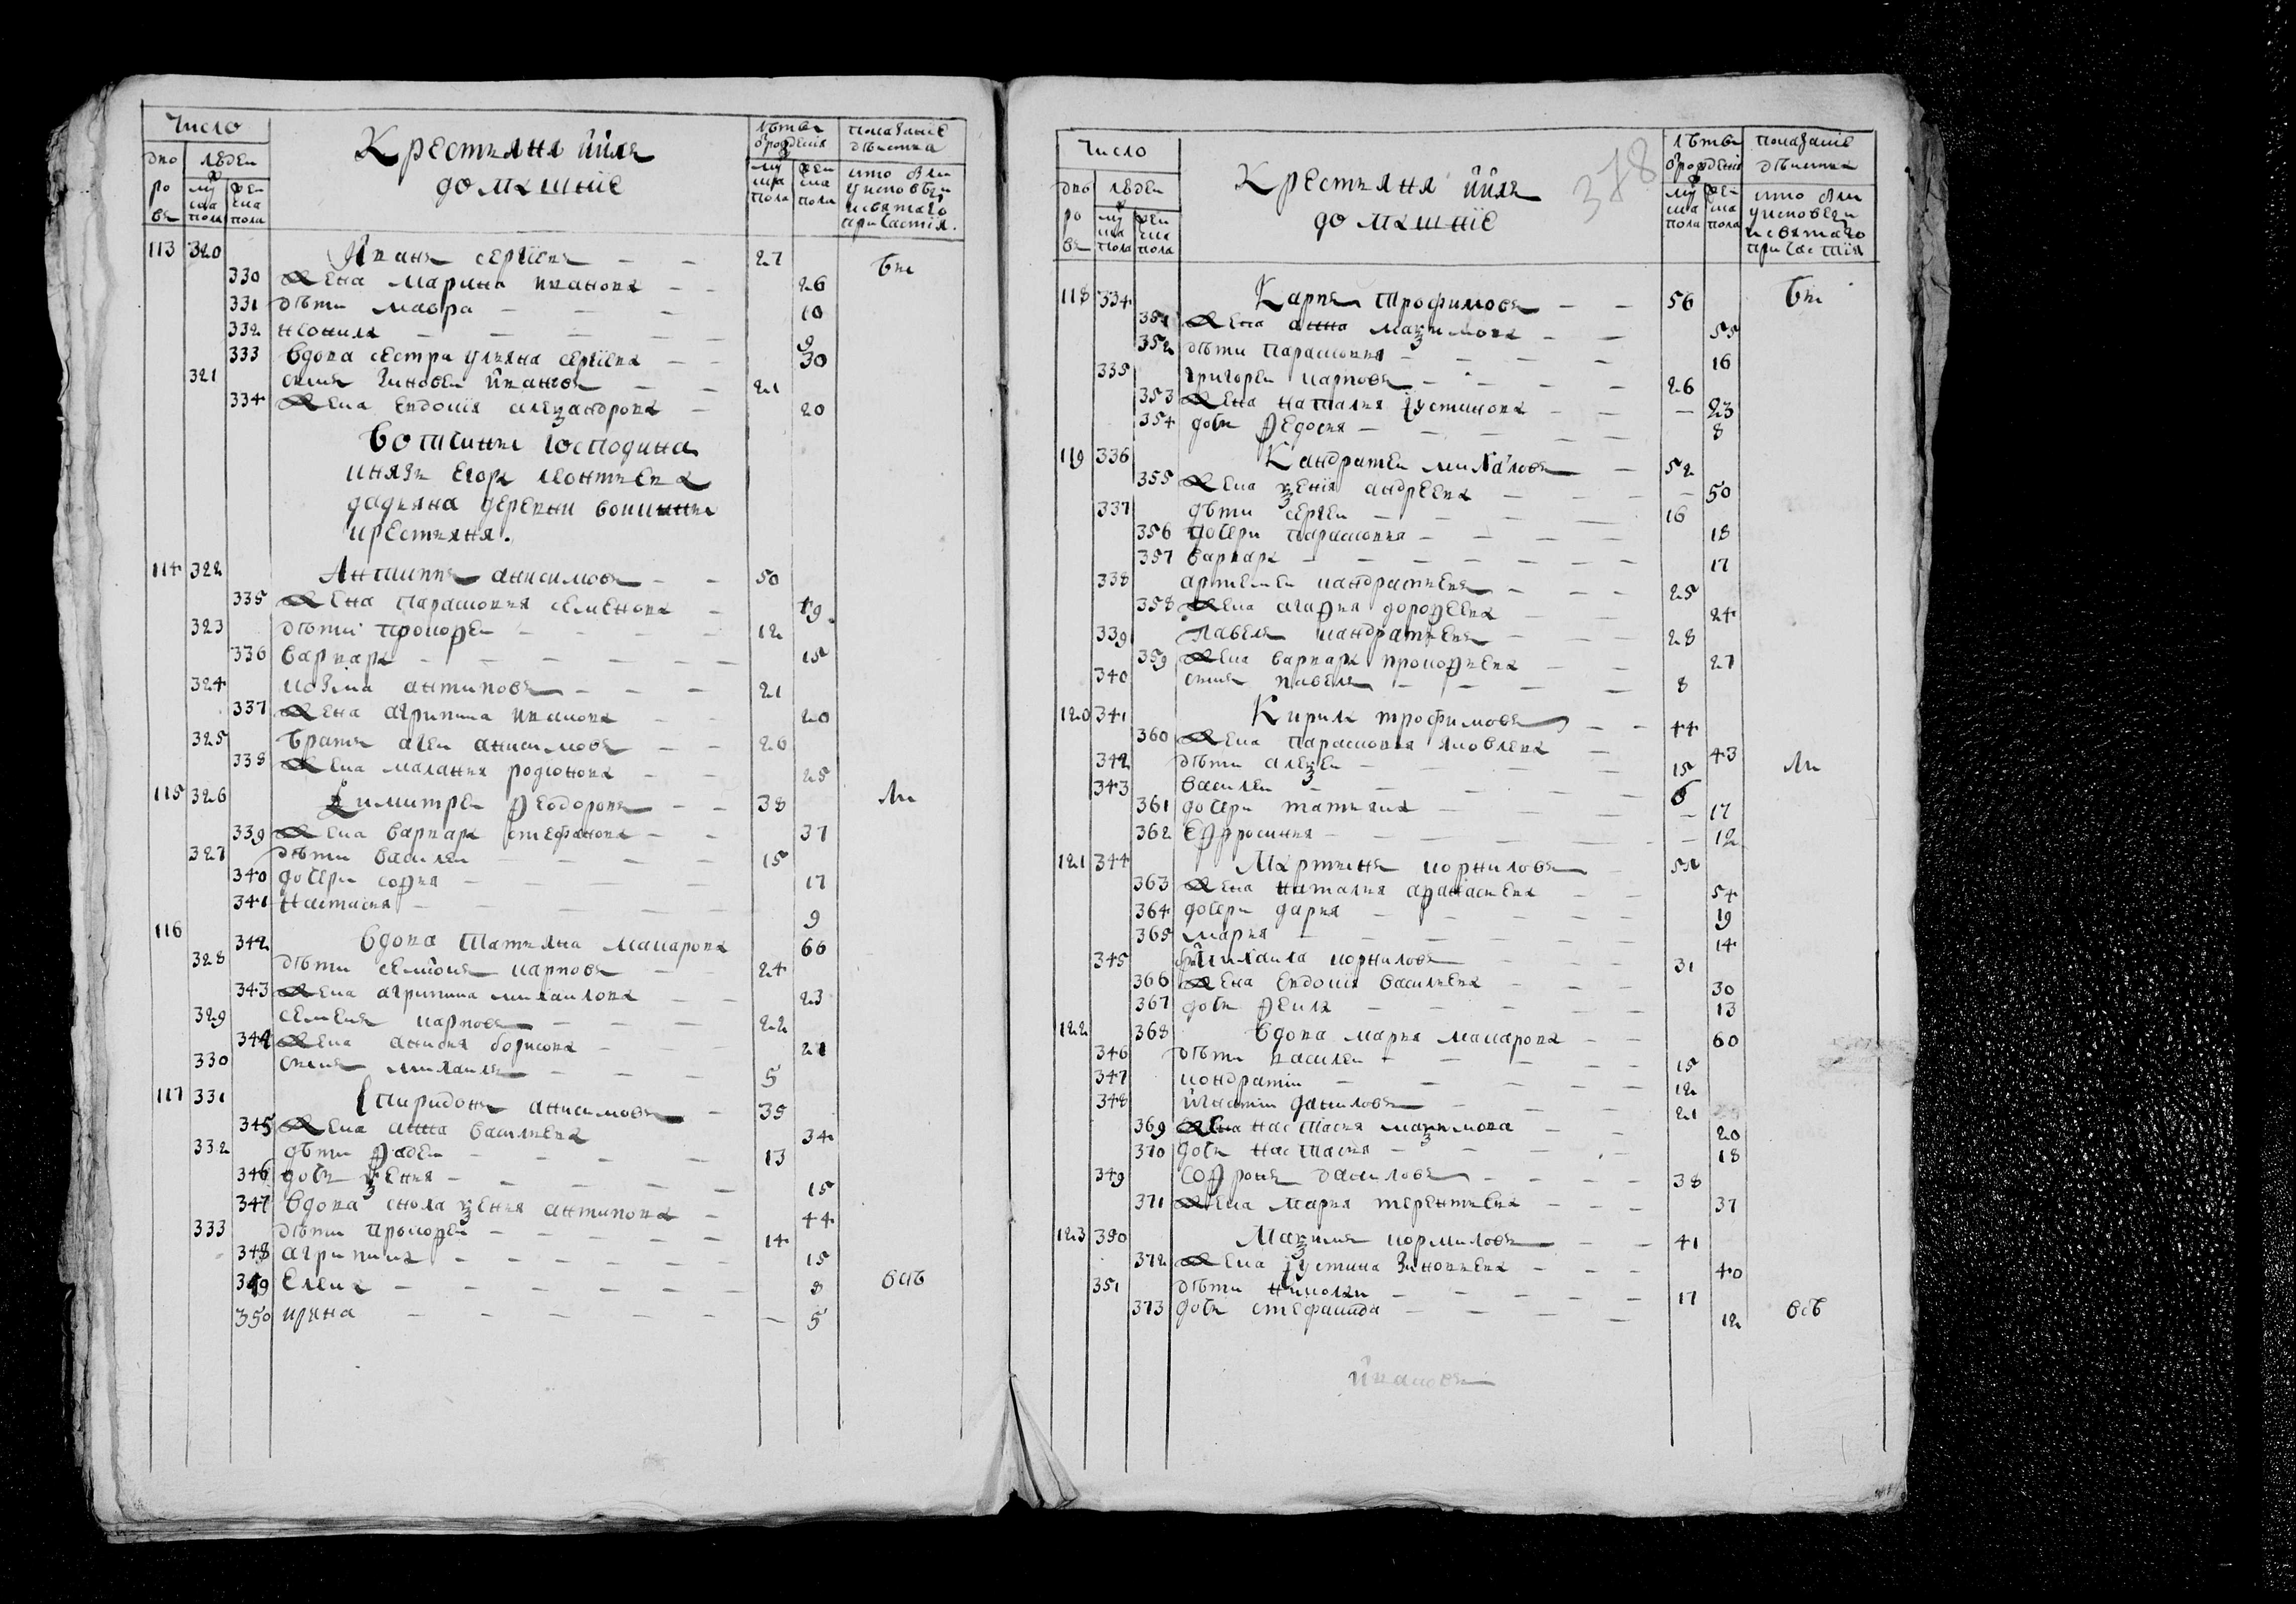 Число
дво
ро
въ
людеи
му
ска
пола
жен
ска
пола
Крестьяня ийхъ
домашние
лѣтъ
ѿ рождения
му
ска
пола
жен
ска
пола
показание
дѣиства
кто былъ
у исповѣди
и святаго
причастия.
113 320 Иванъ сергиевъ 27 были
330 Жена Марина иванова 26
331 дѣти мавра 10
332 неонила 9
333 вдова сестра улияна сергиева 30
321 сынъ Зиновеи ивановъ 21
334 Жена Евдокия алеѯандрова 20
Вотчины Господина
князь Егора леонтьева
дадьяна деревни
крестьяня.
114 322 Антипъ анисимовъ 50
335 Жена парасковья семенова 49
323 дѣти прокоѳеи 12
336 варвара 15
324 козма антиповъ 21
337 Жена агрипина иванова 20
325 братъ агеи анисимовъ 26
338 Жена маланья родионова 25
115 326 Димитреи ѳеодоровъ 38
339 Жена варвара стефанова 37
327 дѣти василеи 15
340 дочери соѳья 17
341 настасья 9
116 342 вдова Татьяна макарова 66
328 дѣти семионъ карповъ 24
343 Жена агрипина михаилова 23
329 семенъ карповъ 22
344 Жена анисья борисова 21
330 сынъ михаилъ 5
117 331 Спиридонъ анисимовъ 35
345 Жена анна васильева 34
332 дѣти ѳадеи 13
346 дочь ѯенья 15
347 вдова сноха ѯенья антипова 44
333 дѣти прокоѳеи 14
348 агрипина 15
349 Елена 8 всѣ
350 ирина 5
Число
дво
ро
въ
людеи
му
ска
пола
жен
ска
пола
Крестьяня ийхъ
домашние
378
лѣтъ
ѿ рождения
му
ска
пола
жен
ска
пола
показание
дѣиства
кто былъ
у исповѣди
и святаго
причастия
118 334 Карпъ Трофимовъ 56 были
351 Жена анна маѯимова 55
352 дѣти парасковья 16
335 григореи карповъ 26
353 Жена наталья устинова 23
354 дочь ѳедосья 8
119 336 Кандратеи михаловъ 52
355 Жена ѯения андреева 50
337 дѣти сергеи 16
356 дочери парасковья 18
357 варвара 17
338 артемеи кандратьевъ 25
358 Жена агаѳья дороѳеева 24
339 павелъ кандратьевъ 28
359 Жена варвара прокоѳьева 27
340 сынъ павелъ 8
120 341 Кирила трофимовъ 44
360 Жена парасковья яковлева 43
342 дѣти алеѯеи 15
343 василеи 6
361 дочери татьяна 17
362 Еѳросинья 12
121 344 Мартынъ корниловъ 55
363 Жена наталья аѳанасьева 54
364 дочери дарья 19
365 марья 14
345 михаила корниловъ 31
366 Жена Евдокия васильева 30
367 дочь ѳекла 13
122 368 вдова марья макарова 60
346 дѣти василеи 15
347 кондратии 12
348 игнатии даниловъ 21
369 Жена настасья маѯимова 20
370 дочь настасья 18
349 соѳронъ даниловъ 38
371 Жена марья терентьева 37
123 350 Маѯимъ кормиловъ 41
372 Жена устина Зиновьева 40
351 дѣти николаи 17
373 дочь стефанида 12 всѣ
ивановъ